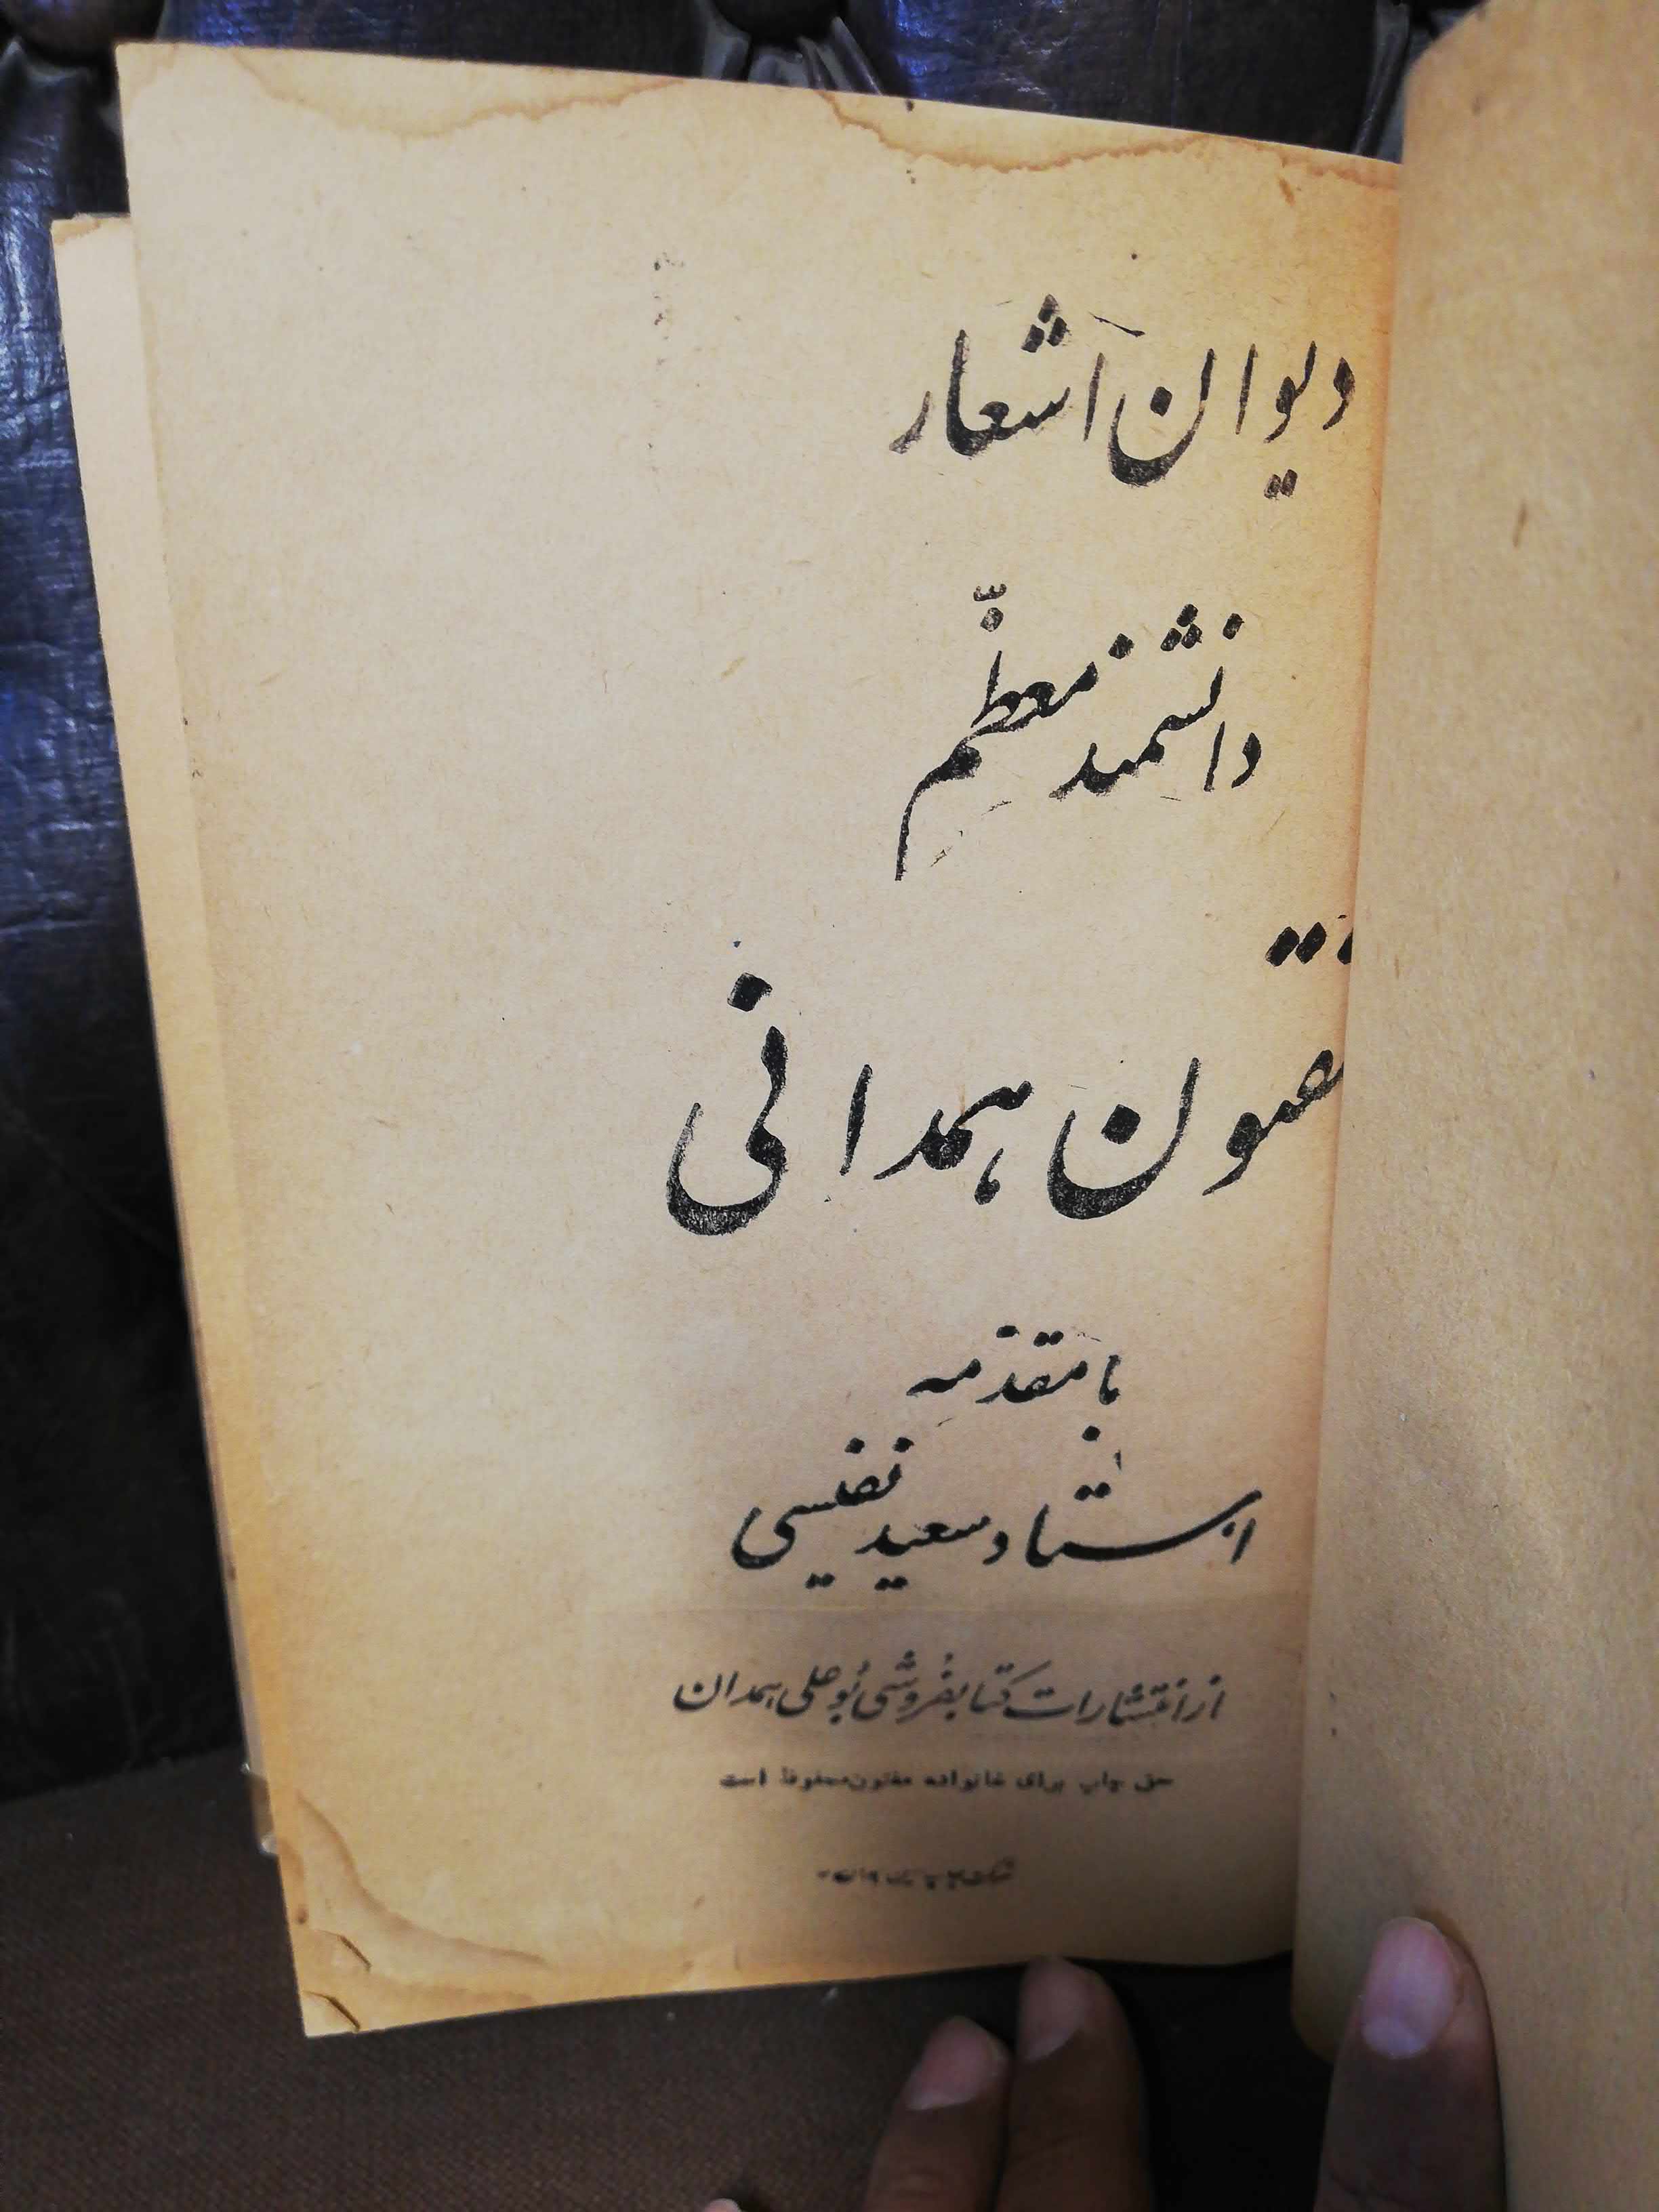 دیوان اشعار
دانشمند معظّم
مفتون همدانی
با مقدمه
استاد سعید نفیسی
از انتشارات کتابفروشی بوعلی همدان
حق چاپ برای خانواده مفتون محفوظ است